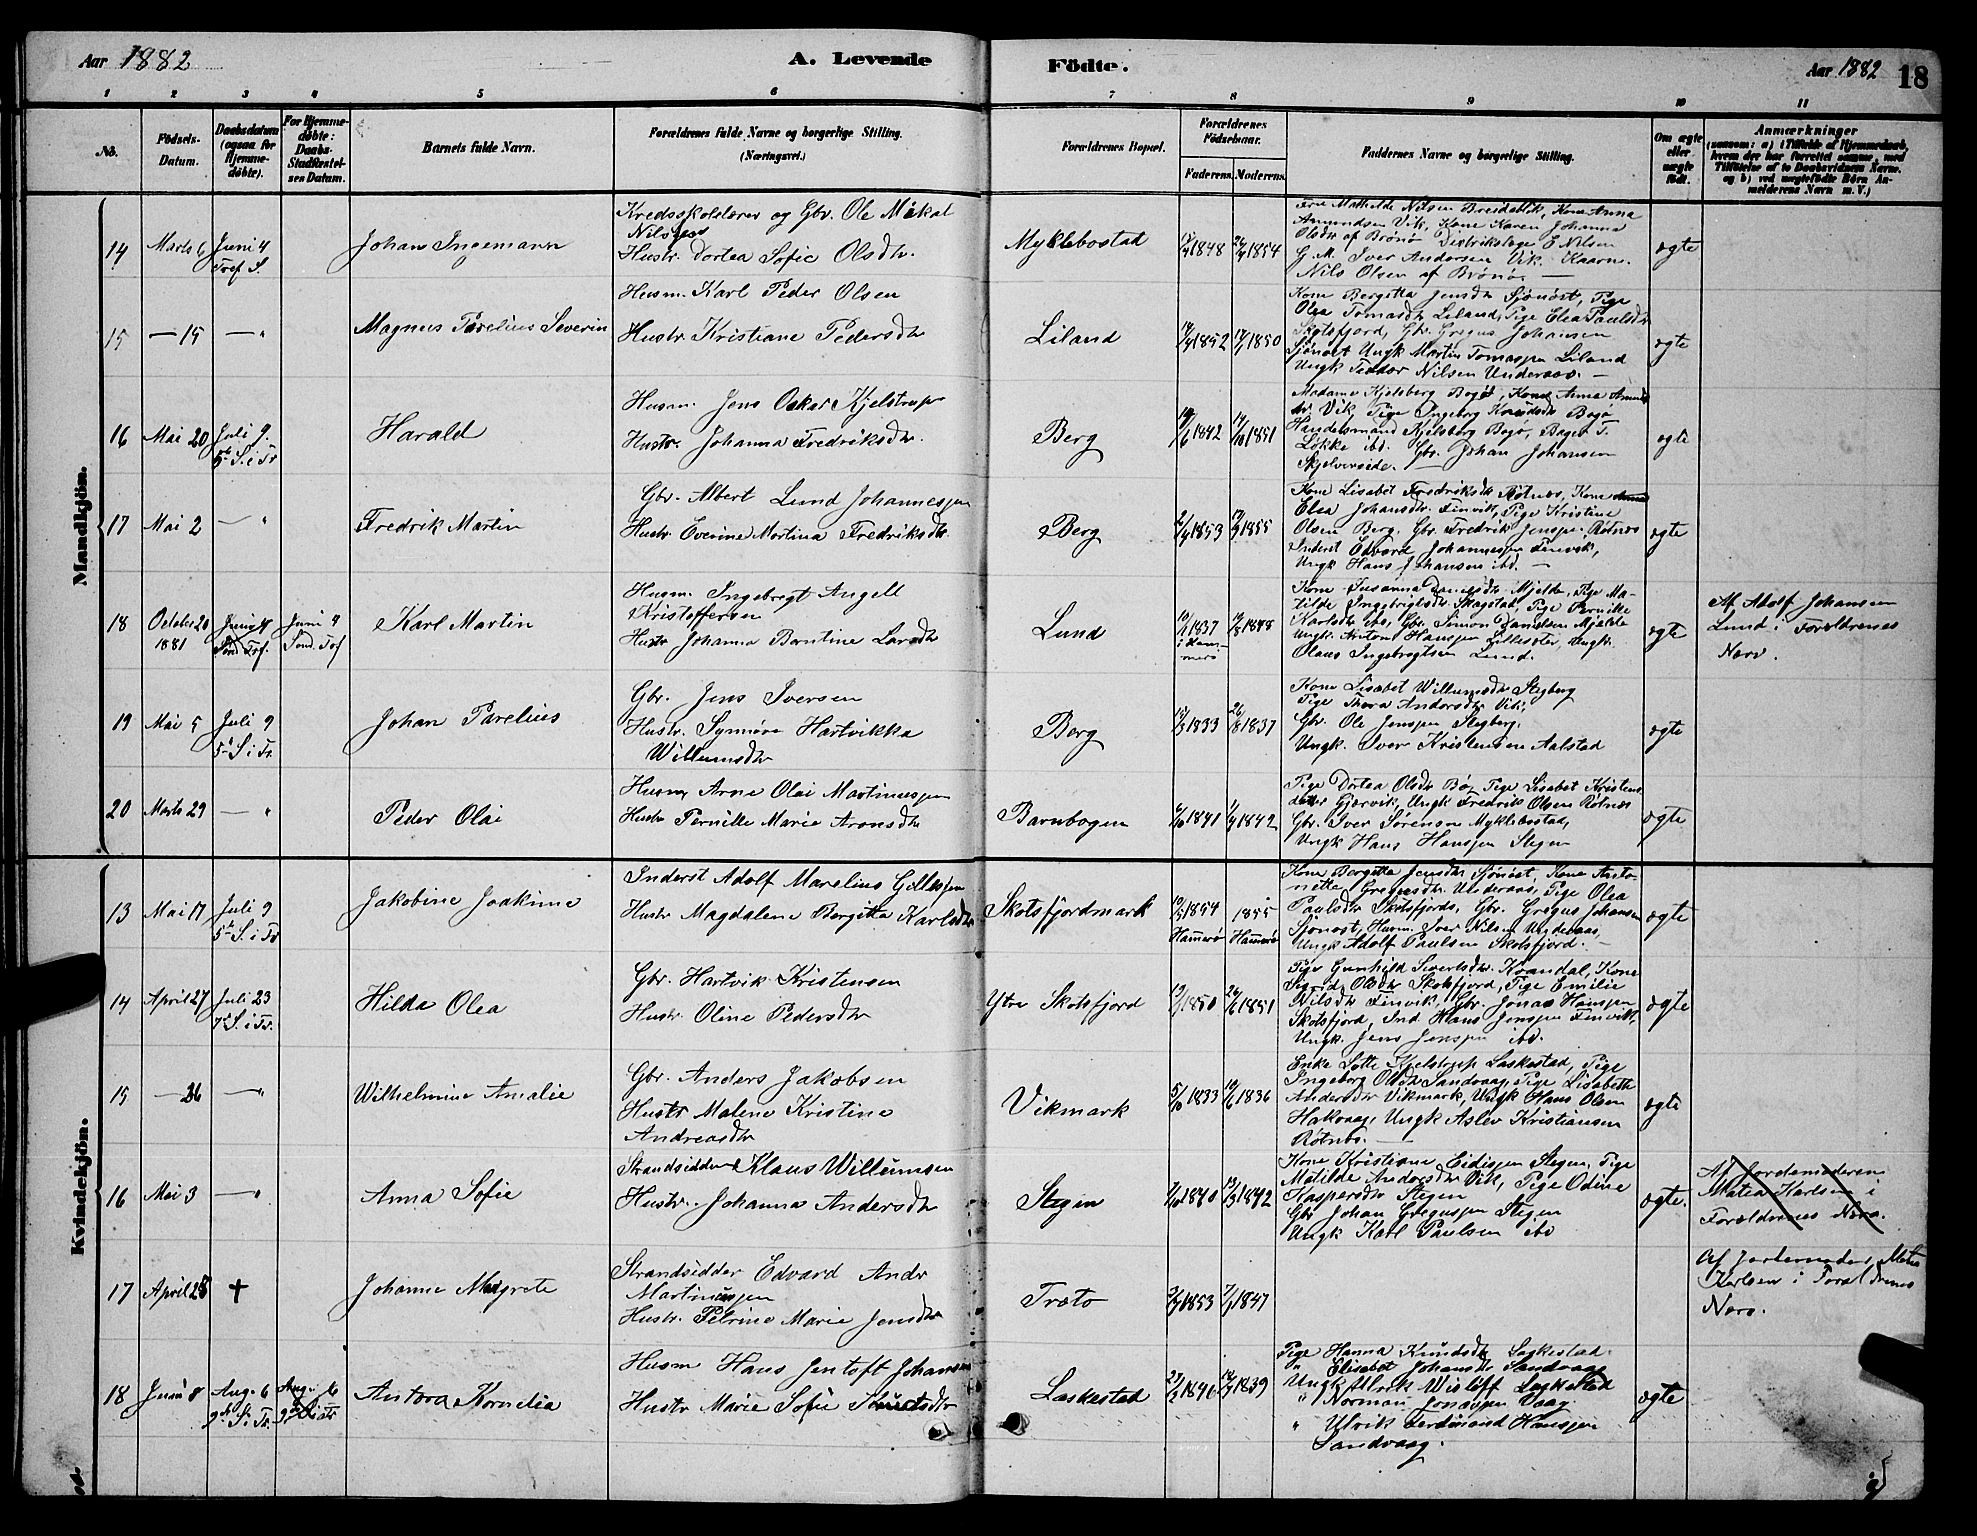 Aar 1882
A. Levende
Födte.
Aar 1882
18
1 2 3 4 5 6 7 8 9 10 11
No.
Födsels-
Datum.
Daabsdatum
(ogsaa for
Hjemme-
døbte).
For Hjemme-
døbte:
Daabs-
Stadfæstel-
sen Datum.
Barnets fulde Navn.
Forældrenes fulde Navne og borgerlige Stilling.
(Næringsvei.)
Forældrenes Bopæl.
Forældrenes
Födselsaar.
Faderens. Moderens.
Faddernes Navne og borgerlige Stilling.
Om ægte
eller
uægte
født.
Anmærkninger
(saasom: a) i Tilfælde af Hjemmedaab,
hvem der har forrettet samme, med
Tilföielse af to Daabsvidners Navne.
og b) ved uægtefödte Börn An-
melderens Navn m. V.)
Mandkjön.
14
Marts 6
Juni 4
Tref S.
Johan Ingemann
Kredsskolelærer og Gbr. Ole Mikal
Nilssen
Hustr. Dortea Sofie Olsdtr.
Myklebostad
1848
1854
Fru Mathilde Nilsen Breidablik, Kone Anna
Amundsen Vik, Kone Karen Johanna
Olsdtr af Brønø Distriktslæge E Nilsen
G. M. Iver Andersen Vik. Kaarm.
Nils Olsen af Brønø. —
ægte
15
— 15
— "
Magnus Parelius Severin
Husm. Karl Peder Olsen
Hustr. Kristiane Pedersdtr
Liland
1852
1850
Kone Bergitta Jensdtr Sjønøst, Pige
Olea Tomasdtr Liland, Pige Elea Paulsdtr
Skotsfjord, Gbr. Gregus Johansen
Sjønøst Ungk Martin Tomassen Liland
Ungk Teodor Nilsen Underaas. —
ægte
16
Mai 20
Juli 9.
5te S. i Tr
Harald
Husm. Jens Oskar Kjelstrup
Hustr. Johanna Fredriksdtr.
Berg
1842
1851
Madame Kjelsberg Bogø, Kone Anna Amunds
dtr Vik Pige Ingeborg Knudsdtr Bogø
Handelsmand Kjelsberg Bogø, Bager T.
Løkke ibd. Gbr. Johan Johansen
Skjelverside. —
ægte
17
Mai 2
— "
Fredrik Martin
Gbr. Albert Lund Johannessen
Hustr. Everine Martina Fredriksdtr.
Berg
1853
1855
Kone Lisabet Fredriksdtr Røtnes, Kone
Elea Johansdtr. Finvik, Pige Kristine
Olsen Berg. Gbr. Fredrik Jenssen Røtnes
Inderst Edvard Johannessen Finvik,
Ungk Hans Johansen ibd. —
ægte
18
October 20
1881
Juni 4
Sønd. Tref.
Juni 4
Sønd. Tref
Karl Martin
Husm. Ingebregt Angell
Kristoffersen
Hustr Johanna Berntine Larsdtr
Lund
1837
i Ham-
merø
1848
Kone Susanna Danielsdtr. Mjelde, Pige Ma-
tilde Ingebrigtsdtr Skagstad, Pige Pernike
Karlsdtr ibd, Gbr. Simon Danielsen Mjelde
Ungk Anton Hanssen Lilleseter, Ungk.
Olaus Ingebregtsen Lund.
ægte
Af Adolf Johansen
Lund i Forældrenes
Nærv.
19
Mai 5
Juli 9
5te S i Tr.
Johan Parelius
Gbr. Jens Iversen
Hustr. Synnøve Hartvikka
Willumsdtr
Berg
1833
1837
Kone Lisabet Willumsdtr Stegberg
Pige Thora Andersdtr Vik,
Gbr. Ole Jenssen Stegberg.
Ungk. Iver Kristensen Aalstad
ægte
20
Marts 29
— "
Peder Olai
Husm Arne Olai Martinussen
Hustr Pernille Marie Aronsdtr
Barnbogen
1841
1842
Pige Dortea Olsdtr Bø, Pige Lisabet Kristens
datter Gjærvik, Ungk Fredrik Olsen Røtnes
Gbr. Iver Sørensen Myklebostad,
Ungk Hans Hanssen Stegen
ægte
Kvindekjön.
13
Mai 17
Juli 9
5te S. i Tr
Jakobine Joakime
Inderst Adolf Marelius Gillessen
Hustr Magdalene Bergitta Karlsdtr
Skotsfjordmark
1854
Hamerø
1855
Hamerø
Kone Bergitta Jensdtr. Sjønøst, Kone Anto-
nette Gregusdtr. Underaas, Pige Olea
Paulsdtr Skotsfjord, Gbr. Gregus Johansen
Sjønøst, Husm. Iver Nilsen Underaas,
Ungk Adolf Paulsen Skotsfjord. —
ægte
14
April 27
Juli 23
7de S. i Tr.
Hilda Olea
Gbr. Hartvik Kristensen
Hustr. Oline Pedersdtr
Ytre Skotsfjord
1850
1851
Pige Gunhild Sivertsdtr. Kvandal, Kone
Sigrid Olsdtr Skotsfjord, Pige Emilie
Nilsdtr Finvik, Gbr. Jonas Hanssen
Skotsfjord, Ind Hans Jenssen Finvik,
Ungk. Jens Jenssen ibd.
ægte
15
— 26
— "
Wilhelmine Amalie
Gbr. Anders Jakobsen
Hustr Malene Kristine
Andreasdtr
Vikmark
1833
1836
Enke Lotte Kjelstrup Laskestad, Pige
Ingeborg Olsdtr Sandvaag, Pige Lisabeth
Andersdtr Vikmark, Ungk Hans Olsen
Hakvaag, Ungk Aslev Kristiansen
Røtnes. —
ægte
16
Mai 3
— "
Anna Sofie
Strandsidder Klaus Willumsen
Hustr. Johanna Andersdtr
Stegen
1840
1842
Kone Kristiane Eidissen Stegen, Pige
Matilde Andersdtr Vik, Pige Odine
Kaspersdtr Stegen
Gbr Johan Gregussen Stegen
Ungk Karl Paulsen ibd
ægte.
Af Jordemoderen
Matea Karlsen i
Forældrenes Nærv.
17
April 28
+
Johanne Margrete
Strandsidder Edvard Andr
Martinussen
Hustr. Petrine Marie Jensdtr
Træto
1853
1847
Af Jordemoder Matea
Karlsen i Forældrenes
Nærv.
18
Juni 8
Aug. 6
9de S. Tr.
Aug. 6
9de S i Tr
Antora Kornelia
Husm Hans Jentoft Johansen
Hustr Marie Sofie Knudsdtr
Laskestad
1846
1839
Pige Hanna Knudsdtr Laskestad
" Elisabet Johansdtr Sandvaag
Ungk Ulrik Wisløff Laskestad
" Norman Jonassen Vaag
" Ulrik Ferdinand Hanssen
Sandvaag.
ægte